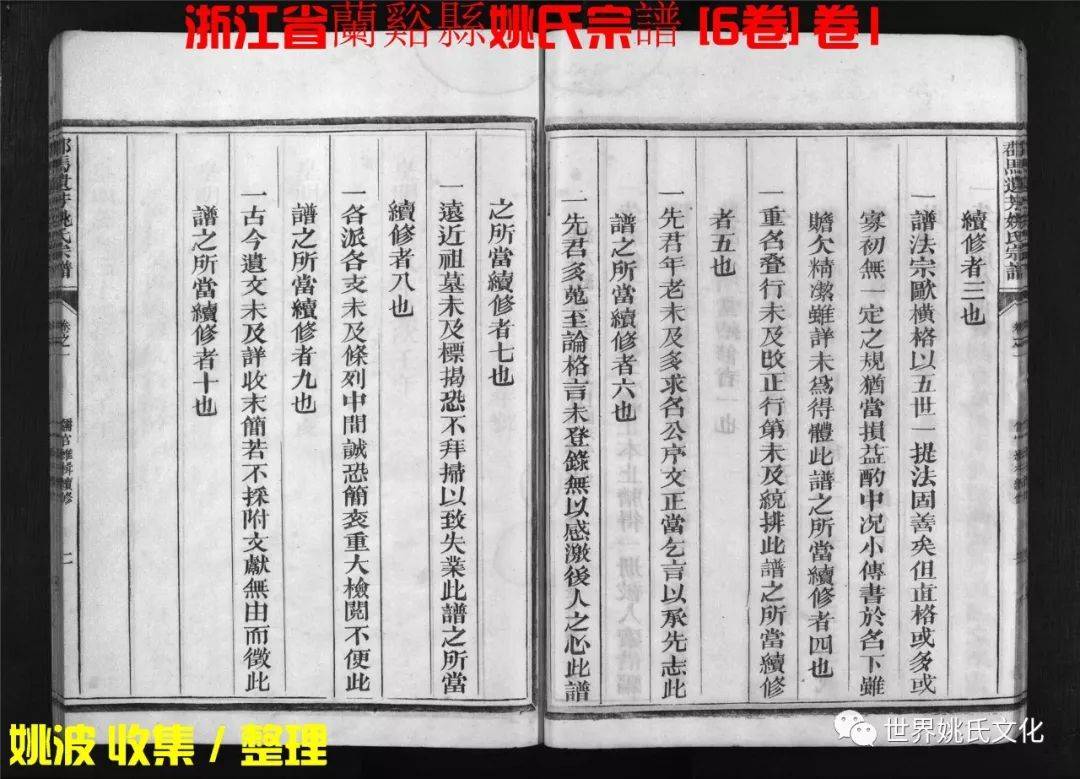 浙江省蘭谿縣姚氏宗譜 [6卷] 卷1
郡馬遺芳姚氏宗譜
續修者三也
一譜法宗歐橫格以五世一提法固善矣但直格或多或
寡初無一定之規猶當損益酌中况小傳書於名下雖
贍欠精潔雖詳未爲得體此譜之所當續修者四也
一重名叠行未及改正行第未及統排此譜之所當續修
者五也
一先君年老未及多求名公序文正當乞言以承先志此
譜之所當續修者六也
一先君多蒐至論格言未登錄無以感激後人之心此譜
之所當續修者七也
一遠近祖墓未及標揭恐不拜掃以致失業此譜之所當
續修者八也
一各派各支未及條列中間誠恐簡袠重大檢閱不便此
譜之所當續修者九也
一古今遺文未及詳收末簡若不採附文獻無由而徵此
譜之所當續修者十也
姚氏宗譜
卷之一
續修
姚波 收集 / 整理
世界姚氏文化